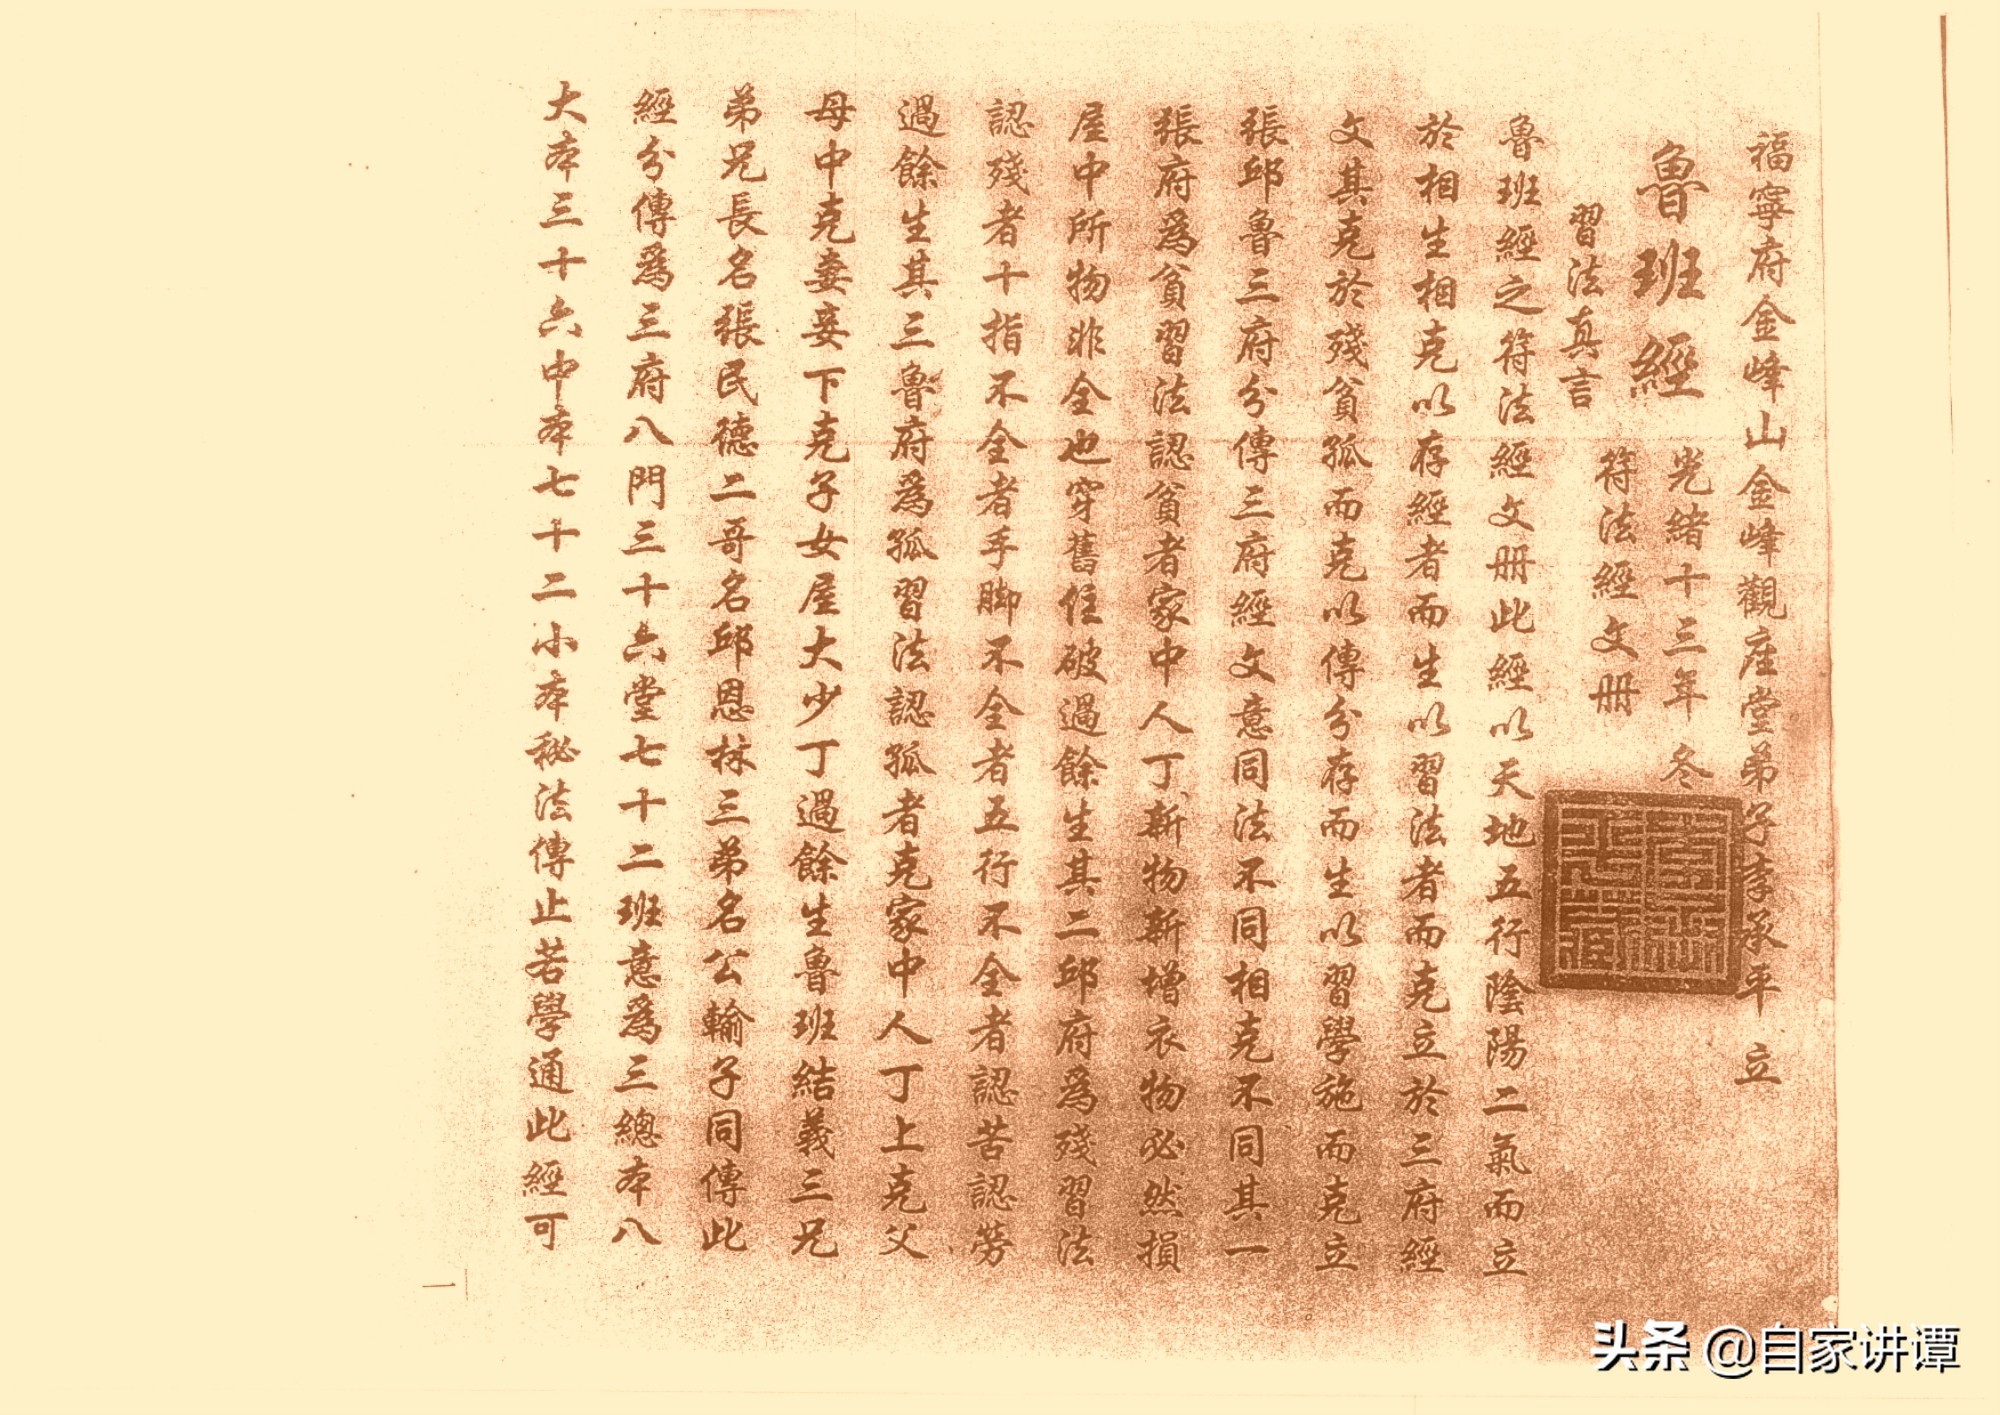 福寧府金峰山金峰觀座堂弟子李承平 立
魯班經 光緒十三年 冬
習法真言 符法經文册
魯班經之符法經文册此經以天地五行陰陽二氣而立
於相生相克以存經者而生以習法者而克立於三府經
文其克於殘貧孤而克以傳分存而生以習學施而克立
張邱魯三府分傳三府經文意同法不同相克不同其一
張府為貧習法認貧者家中人丁新物新增衣物必然損
屋中所物非全也穿舊住破過餘生其二邱府為殘習法
認殘者十指不全者手脚不全者五行不全者認苦認勞
過餘生其三魯府為孤習法認孤者克家中人丁上克父
母中克妻妾下克子女屋大少丁過餘生魯班結義三兄
弟兄長名張民德二哥名邱恩林三弟名公輸子同傳此
經分傳為三府八門三十六堂七十二班意為三總本八
大本三十六中本七十二小本秘法傳止若學通此經可
一
头条 @自家讲谭